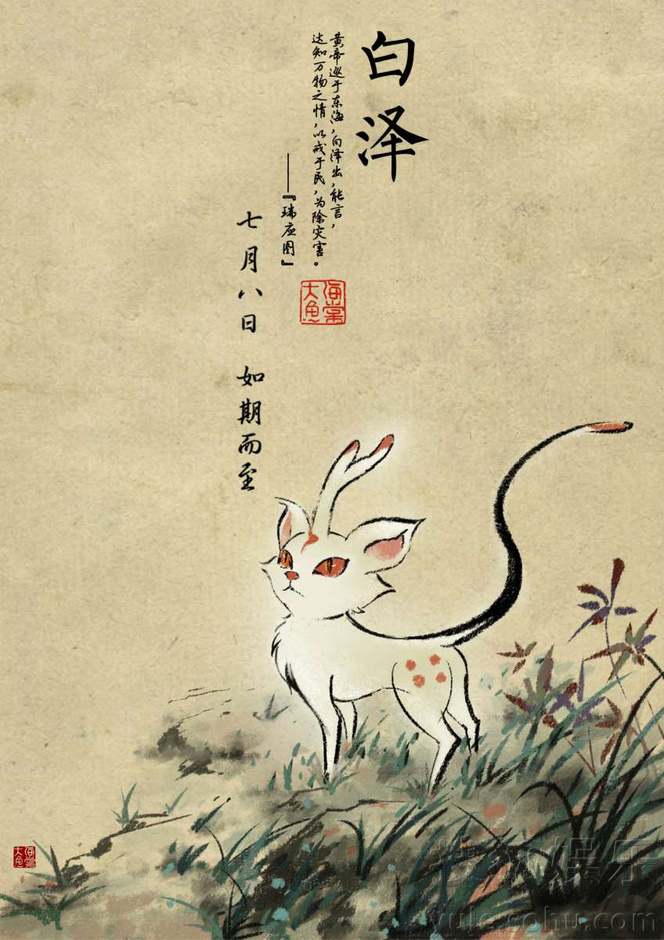 白泽
黄帝巡于东海，白泽出，能言，
达知万物之情，以戒于民，为除灾害。
——『瑞应图』
大鱼海棠
七月八日 如期而至
大鱼海棠
yule.sohu.com